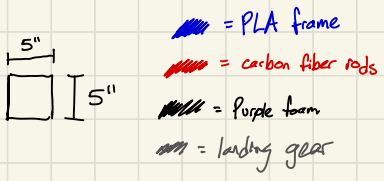 5"
5"
= PLA frame
= carbon fiber rods
= Purple foam
= landing gear